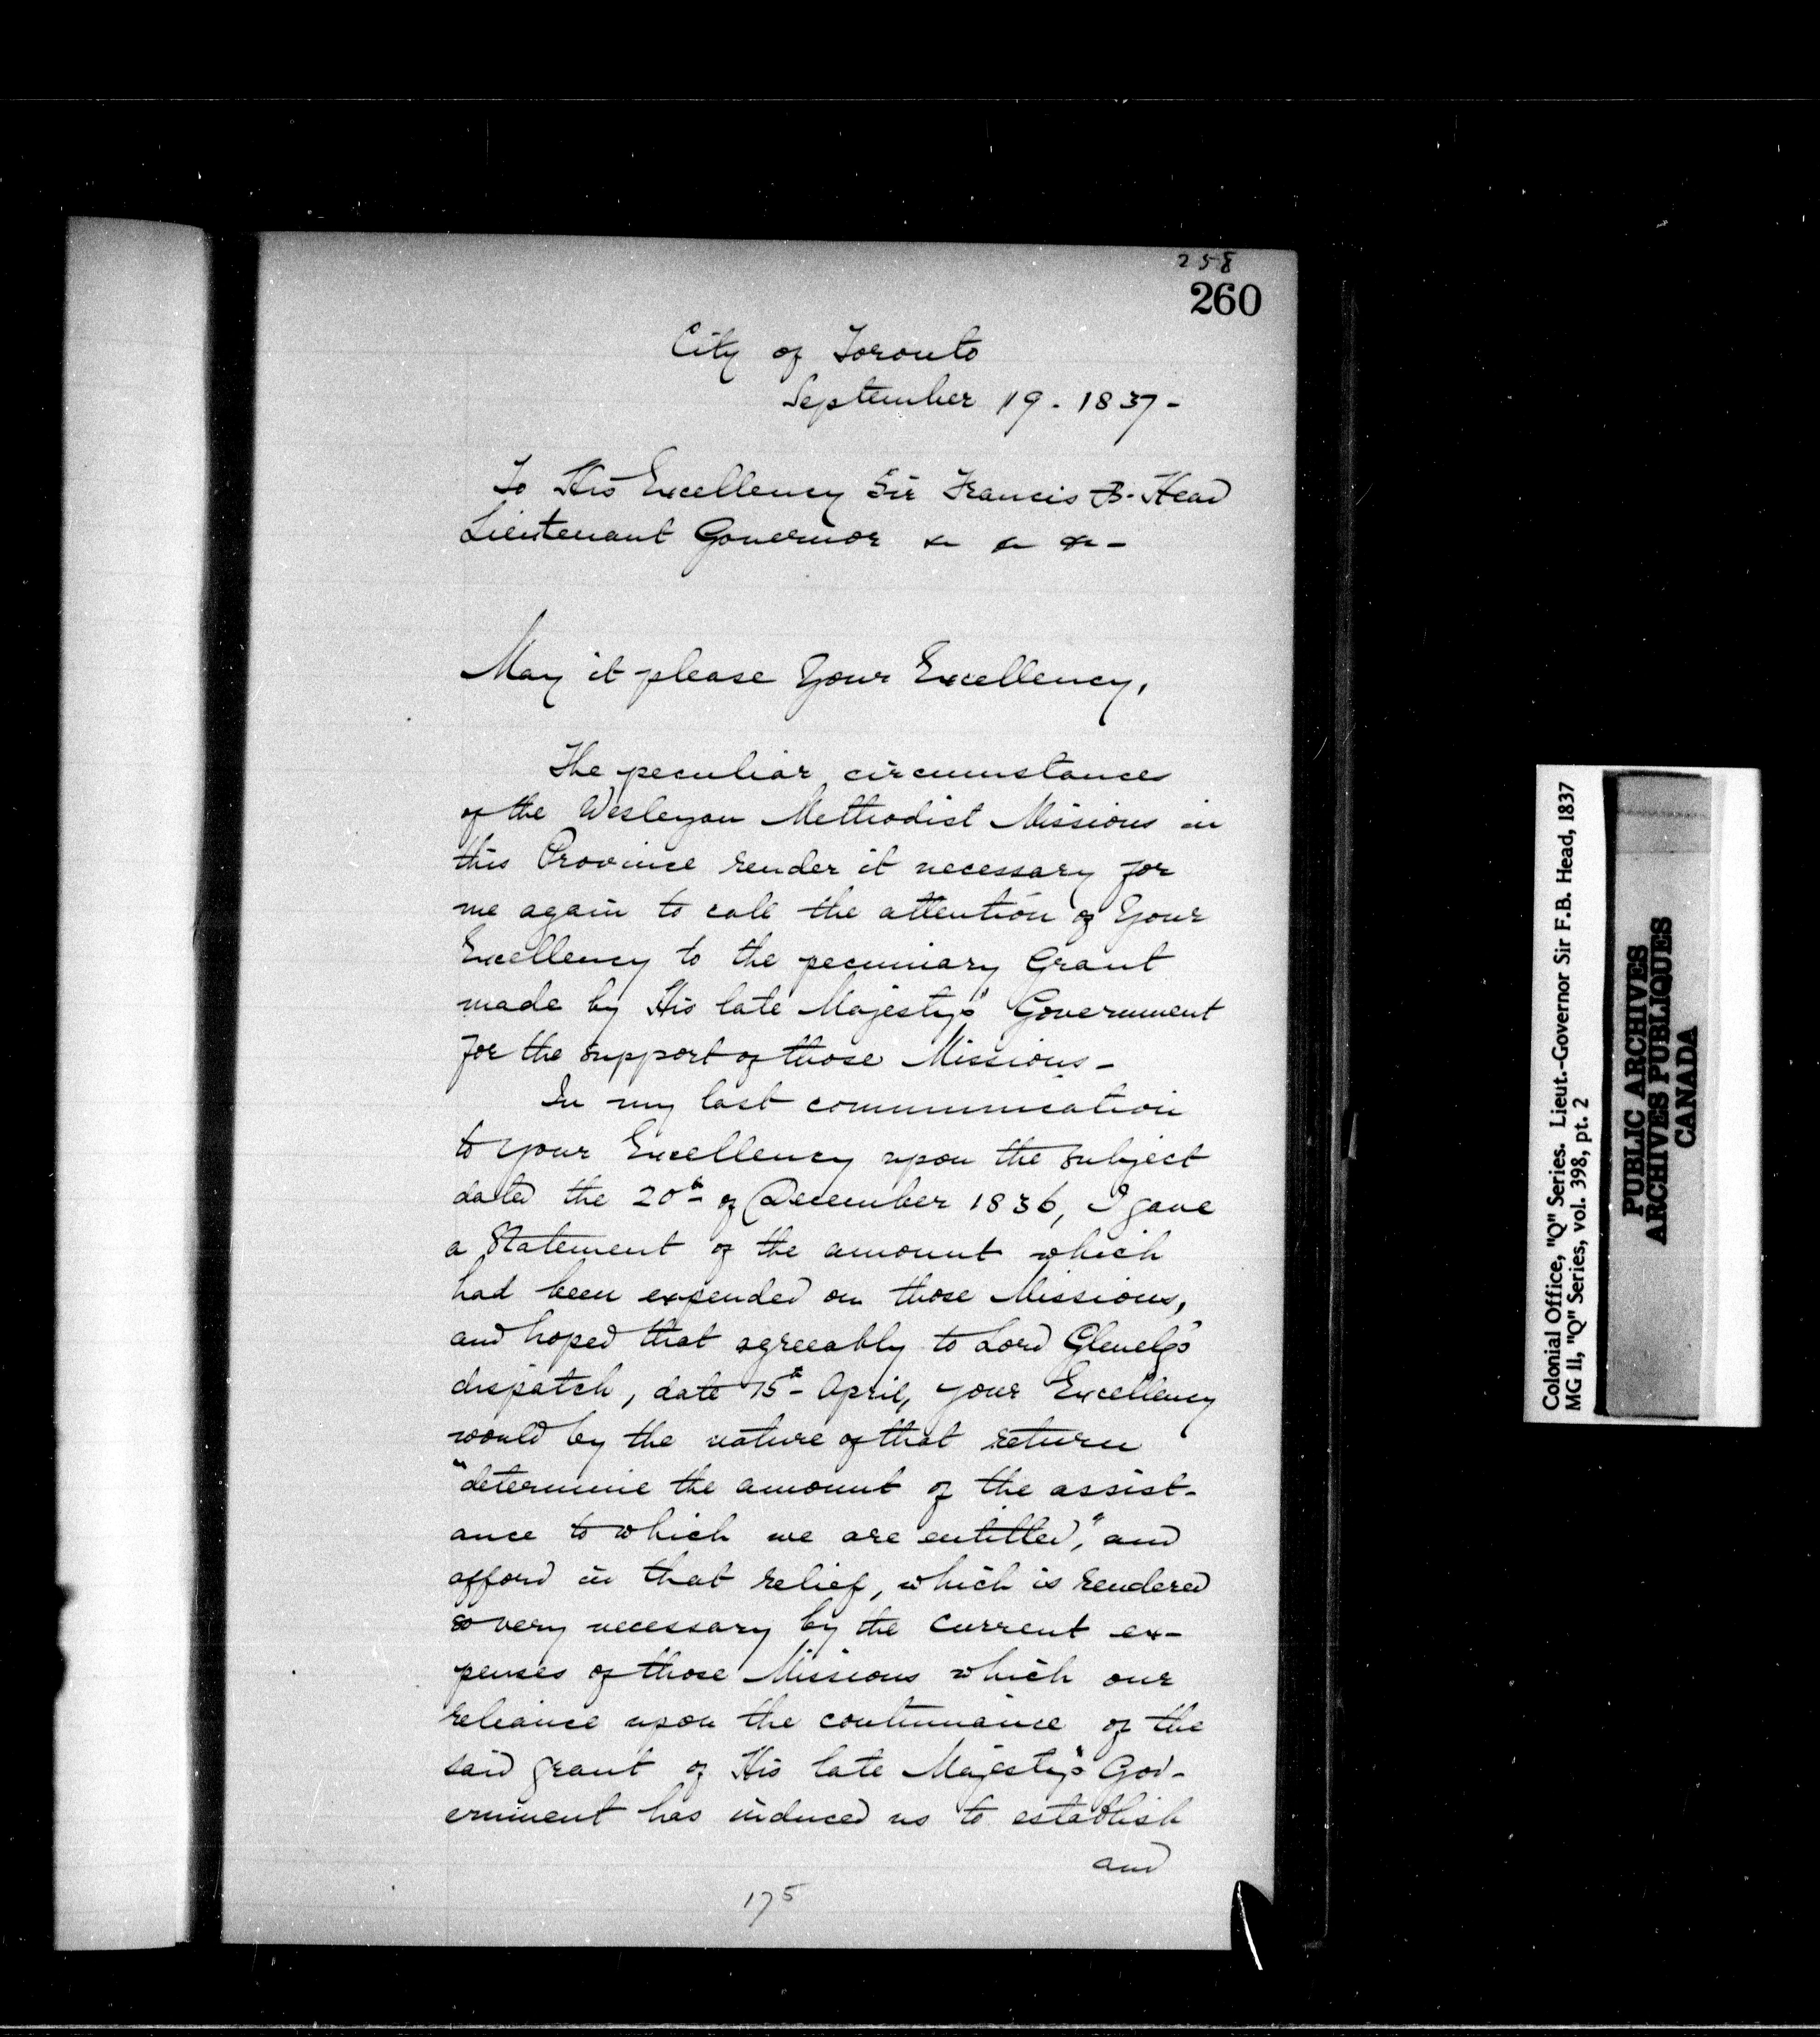 258
260
City of Toronto
September 19 - 1837 -
To His Excellency Sir Francis B. Head
Lieutenant Governor &c &c &c -
May it please Your Excellency,
The peculiar circumstances
of the Wesleyan Methodist Missions in
this Province render it necessary for
me again to call the attention of Your
Excellency to the pecuniary Grant
made by His late Majesty's Government
for the support of those Missions -
In my last communication
to your Excellency upon the subject
dated the 20th of December 1836, I gave
a Statement of the amount which
had been expended on those Missions,
and hoped that agreeably to Lord Glenelg's
dispatch, date 15th April, your Excellency
would by the nature of that return
"determine the amount of the assist-
ance to which we are entitled," and
afford in that relief, which is rendered
so very necessary by the current ex-
penses of those Missions which our
reliance upon the continuance of the
said grant of His late Majesty's Gov-
ernment has induced us to establish
and
175
Colonial Office, "Q" Series. Lieut.-Governor Sir F.B. Head, 1837
MG 11, "Q" Series, vol. 398, pt. 2
PUBLIC ARCHIVES
ARCHIVES PUBLIQUES
CANADA